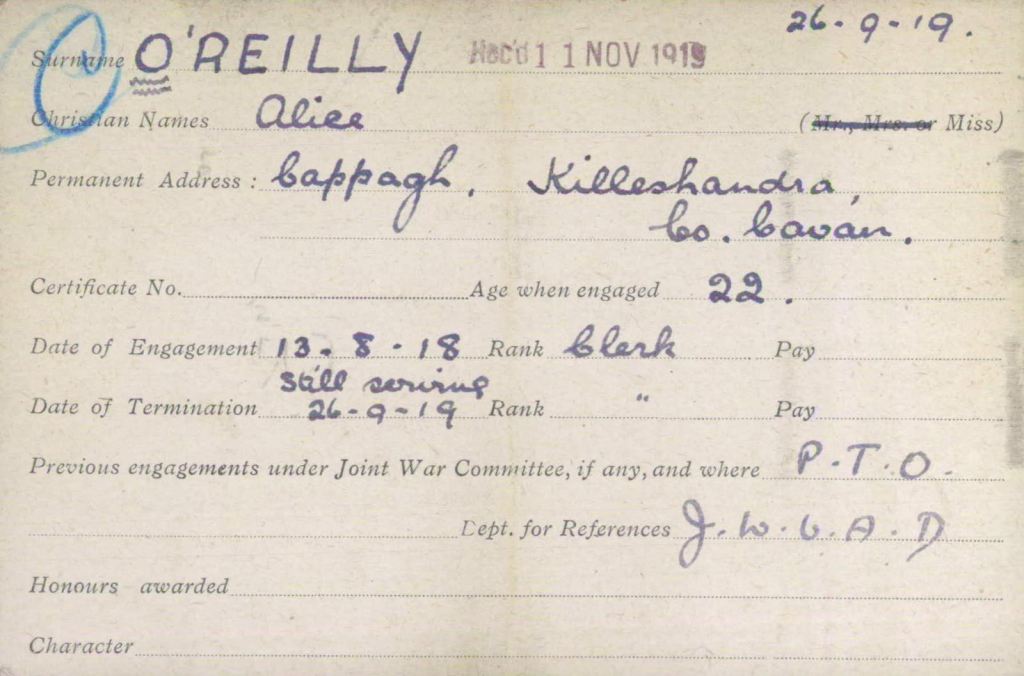 26-9-19.
Surname O'REILLY Rec'd 11 NOV 1919
Christian Names Alice (Mr., Mrs. or Miss)
Permanent Address: Cappagh, Killeshandra,
Co. Cavan.
Certificate No. Age when engaged 22.
Date of Engagement 13-8-18 Rank Clerk Pay
Still serving
Date of Termination 26-9-19 Rank " Pay
Previous engagements under Joint War Committee, if any, and where P.T.O.
Dept. for References J.W.V.A.D
Honours awarded
Character